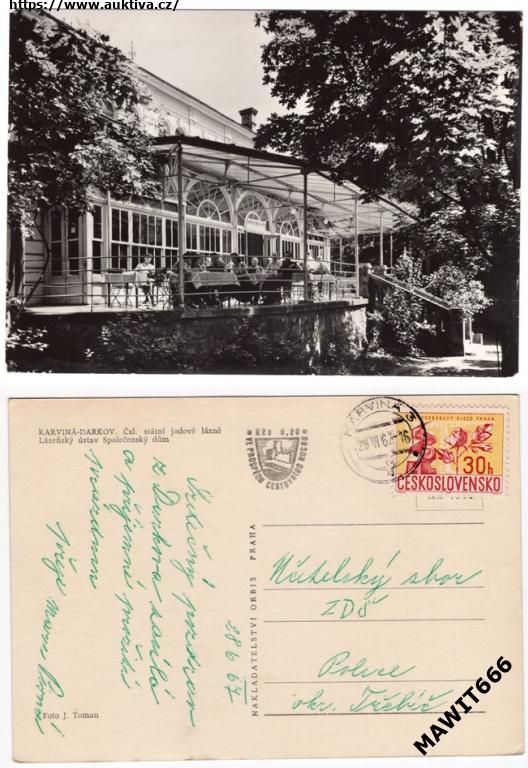 https://www.auktiva.cz/
KARVINÁ-DARKOV. Čsl. státní jodové lázně
Lázeňský ústav Společenský dům
Kčs 0,20
VE PROSPĚCH CESTOVNÍHO RUCHU
KARVINÁ 3
30h
ČESKOSLOVENSKO
Srdečný pozdrav
z Darkova zasílá
a příjemné prožití
prázdnin
přeje
28 6 67
NAKLADATELSTVÍ ORBIS PRAHA
Učitelský sbor
ZDŠ
Police
okr. Třebíč
Foto J. Toman
MAWIT666